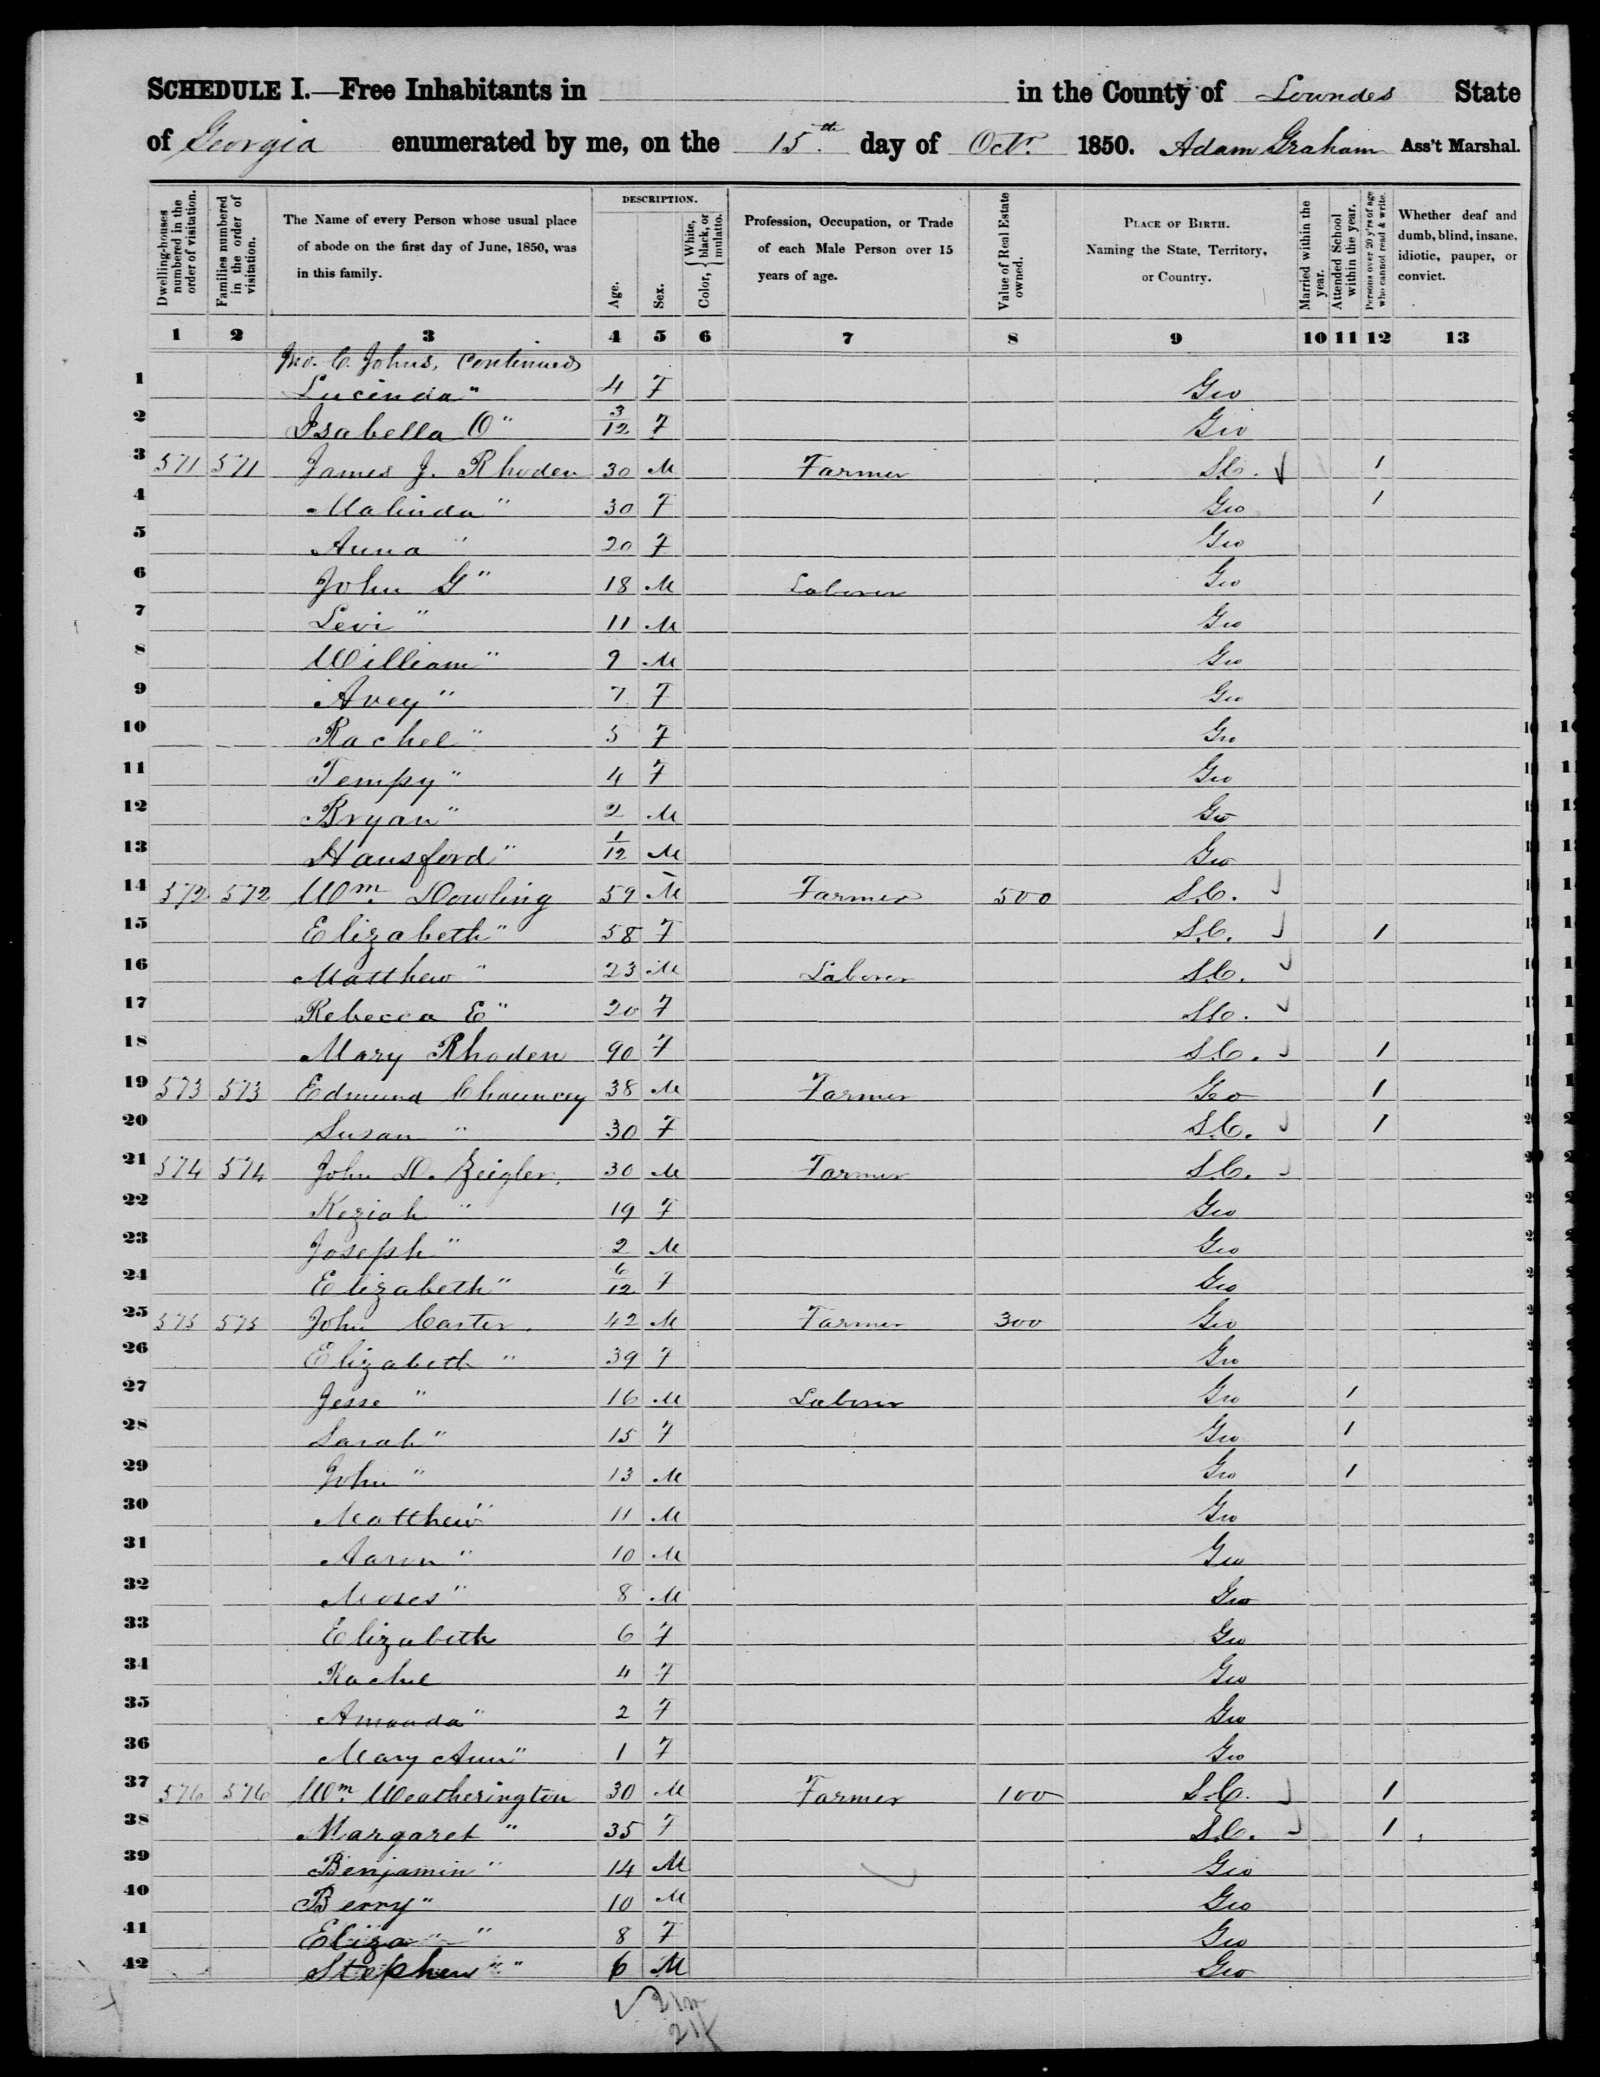 SCHEDULE I.—Free Inhabitants in in the County of Lowndes State
of Georgia enumerated by me, on the 15th day of Oct. 1850. Adam Graham Ass't Marshal.
Dwelling-houses numbered in the order of visitation.
Families numbered in the order of visitation.
The Name of every Person whose usual place of abode on the first day of June, 1850, was in this family.
DESCRIPTION.
Age.
Sex.
Color, { White, black, or mulatto.
Profession, Occupation, or Trade of each Male Person over 15 years of age.
Value of Real Estate owned.
PLACE OF BIRTH. Naming the State, Territory, or Country.
Married within the year.
Attended School within the year.
Persons over 20 y'rs of age who cannot read & write.
Whether deaf and dumb, blind, insane, idiotic, pauper, or convict.
1 2 3 4 5 6 7 8 9 10 11 12 13
Jno. C. Johns, Continued
1 Lucinda " 4 F Geo
2 Isabella O " 3/12 F Geo
3 571 571 James J. Rhoden 30 M Farmer S.C. 1
4 Malinda " 30 F Geo 1
5 Anna " 20 F Geo
6 John G " 18 M Laborer Geo
7 Levi " 11 M Geo
8 William " 9 M Geo
9 Avey " 7 F Geo
10 Rachel " 5 F Geo
11 Tempy " 4 F Geo
12 Bryan " 2 M Geo
13 Hansford " 1/12 M Geo
14 572 572 Wm. Dowling 59 M Farmer 500 S.C.
15 Elizabeth " 58 F S.C. 1
16 Matthew " 23 M Laborer S.C.
17 Rebecca E " 20 F S.C.
18 Mary Rhoden 90 F S.C. 1
19 573 573 Edmund Chauncey 38 M Farmer Geo 1
20 Susan " 30 F S.C. 1
21 574 574 John D. Zeigler 30 M Farmer S.C.
22 Keziah " 19 F Geo
23 Joseph " 2 M Geo
24 Elizabeth " 6/12 F Geo
25 575 575 John Carter 42 M Farmer 300 Geo
26 Elizabeth " 39 F Geo
27 Jesse " 16 M Laborer Geo 1
28 Sarah " 15 F Geo 1
29 John " 13 M Geo 1
30 Matthew " 11 M Geo
31 Aaron " 10 M Geo
32 Moses " 8 M Geo
33 Elizabeth 6 F Geo
34 Rachel 4 F Geo
35 Amanda " 2 F Geo
36 Mary Ann " 1 F Geo
37 576 576 Wm. Weatherington 30 M Farmer 100 S.C. 1
38 Margaret " 35 F S.C. 1
39 Benjamin " 14 M Geo
40 Berry " 10 M Geo
41 Eliza " " 8 F Geo
42 Stephen " " 6 M Geo
21m
21f